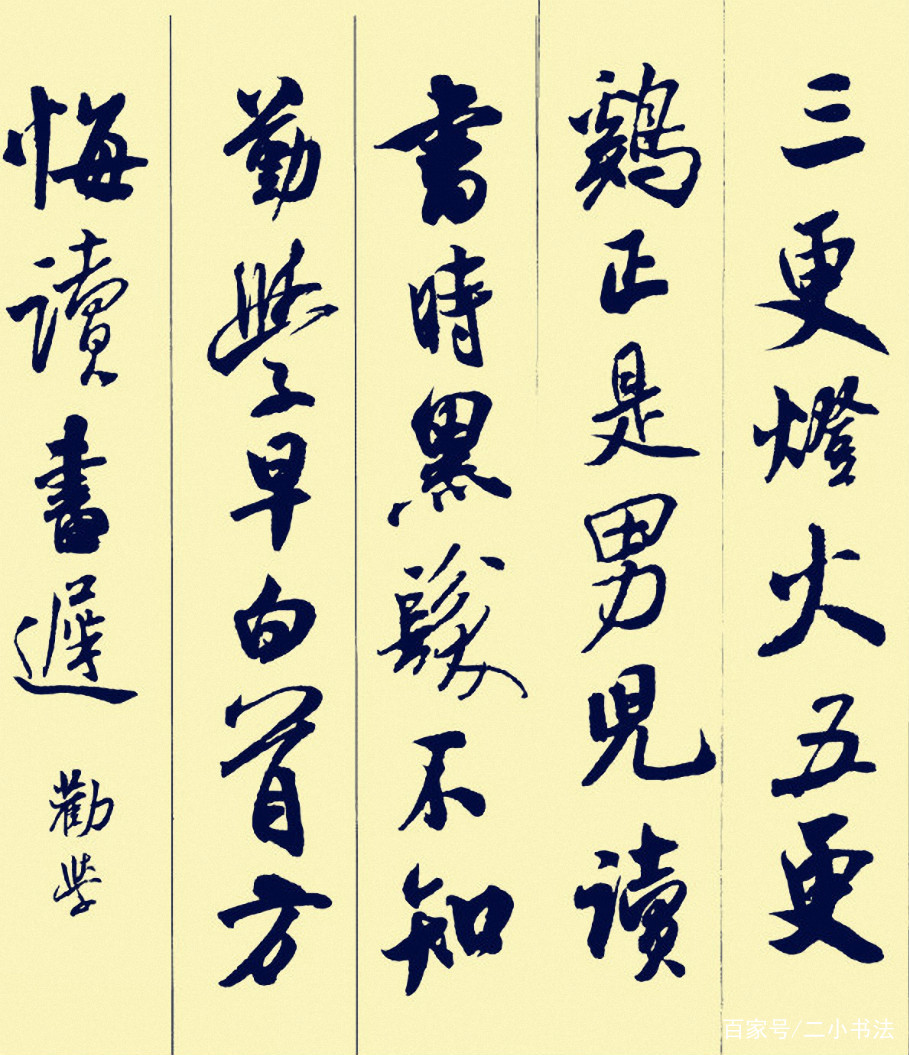 三更燈火五更
鷄正是男兒讀
書時黑髮不知
勤學早白首方
悔讀書遲
勸學
百家号/二小书法